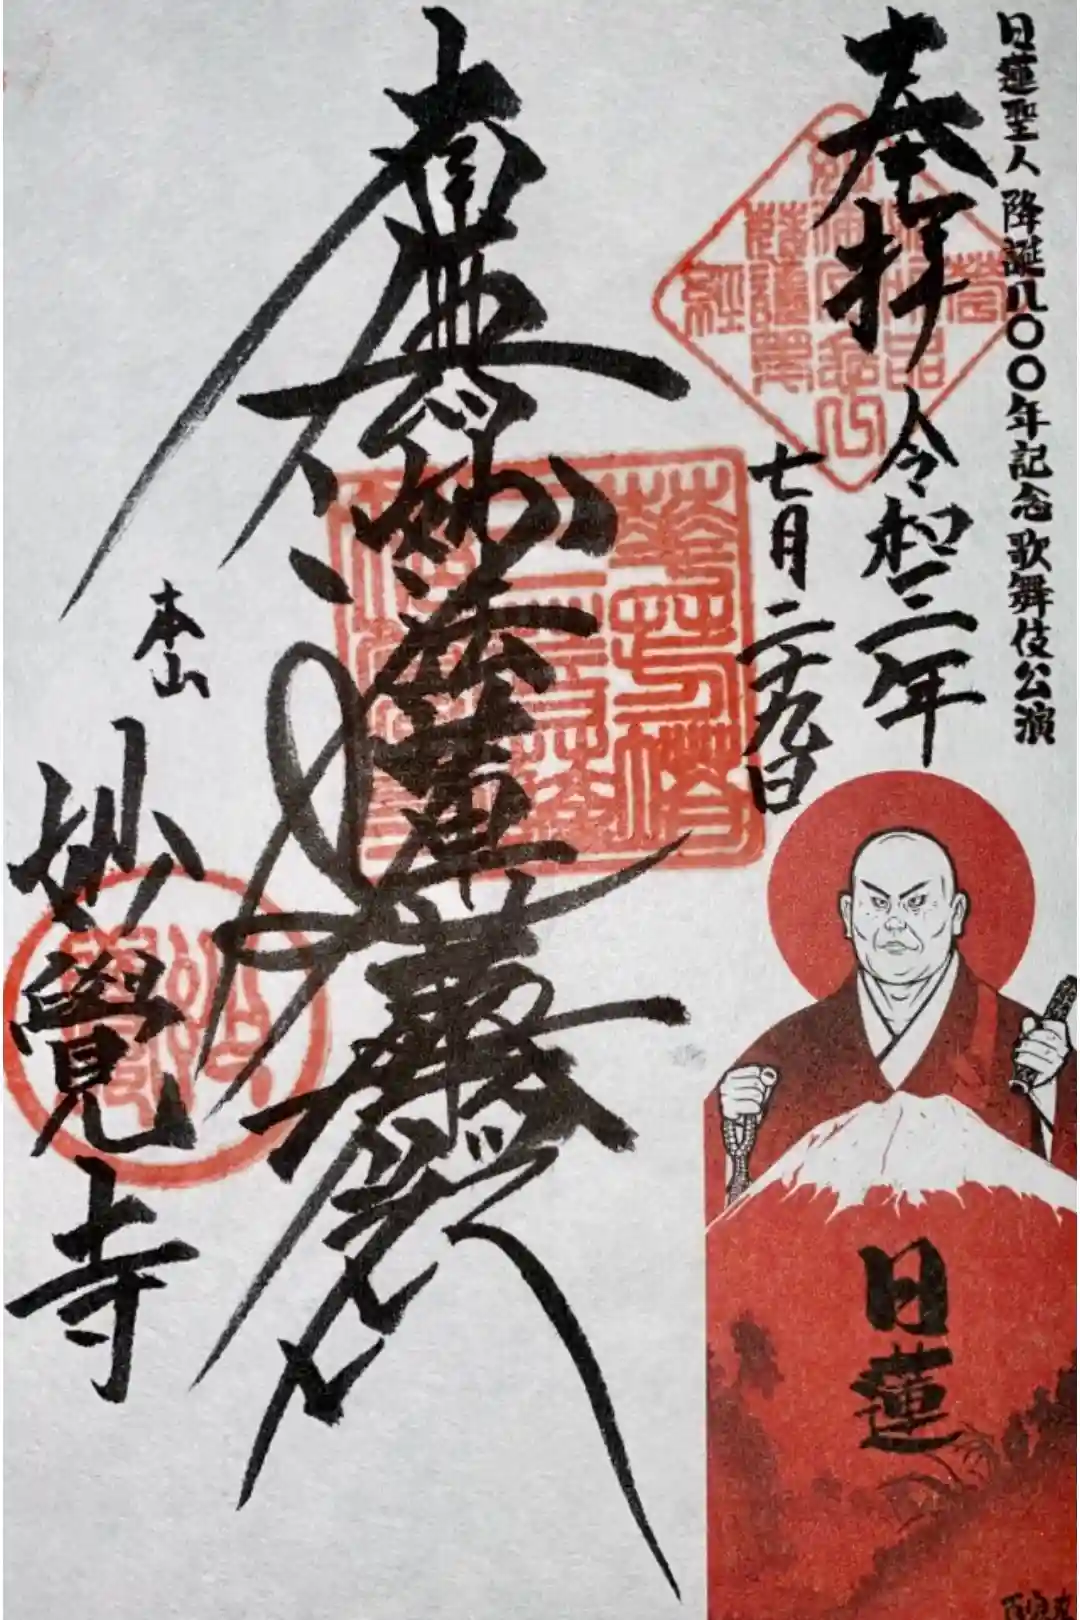 日蓮聖人降誕八〇〇年記念歌舞伎公演
奉拝 令和三年
七月二十九日
南無妙法蓮華經
本山
妙覺寺
日蓮